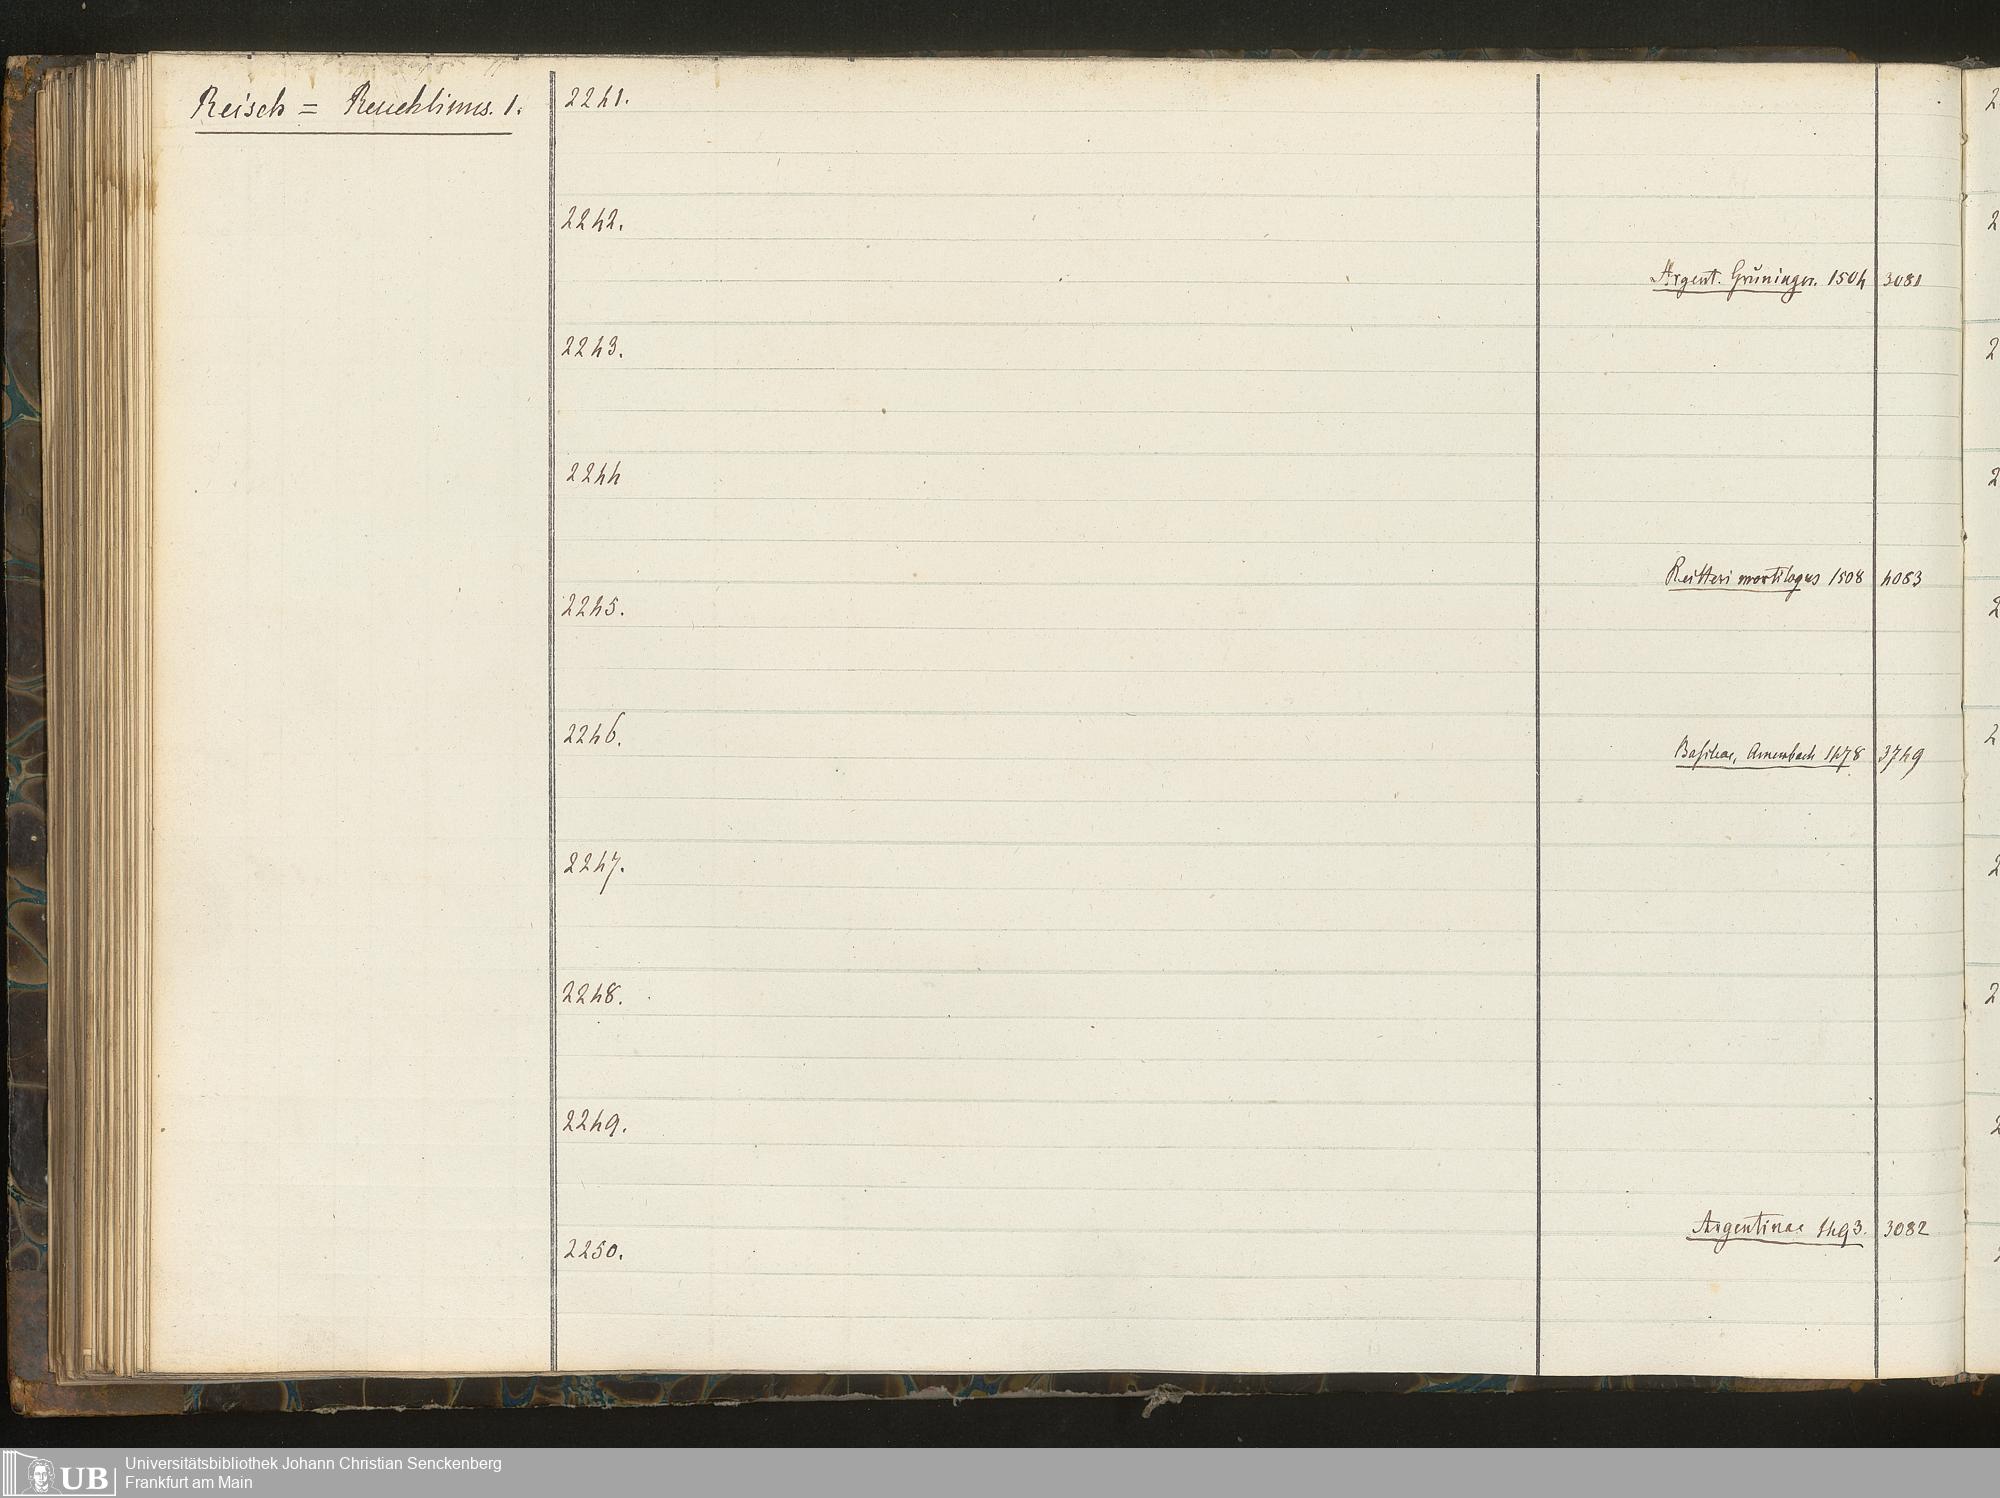 Reisch = Reuchlinus. 1.
2241.
2242.
Argent. Grüninger. 1504 3081
2243.
2244
Reitteri mortilogus 1508 4083
2245.
2246.
Basileae, Amerbach 1478 3749
2247.
2248.
2249.
Argentinae 1493. 3082
2250.
2
2
2
2
2
2
2
2
2
UB
Universitätsbibliothek Johann Christian Senckenberg
Frankfurt am Main